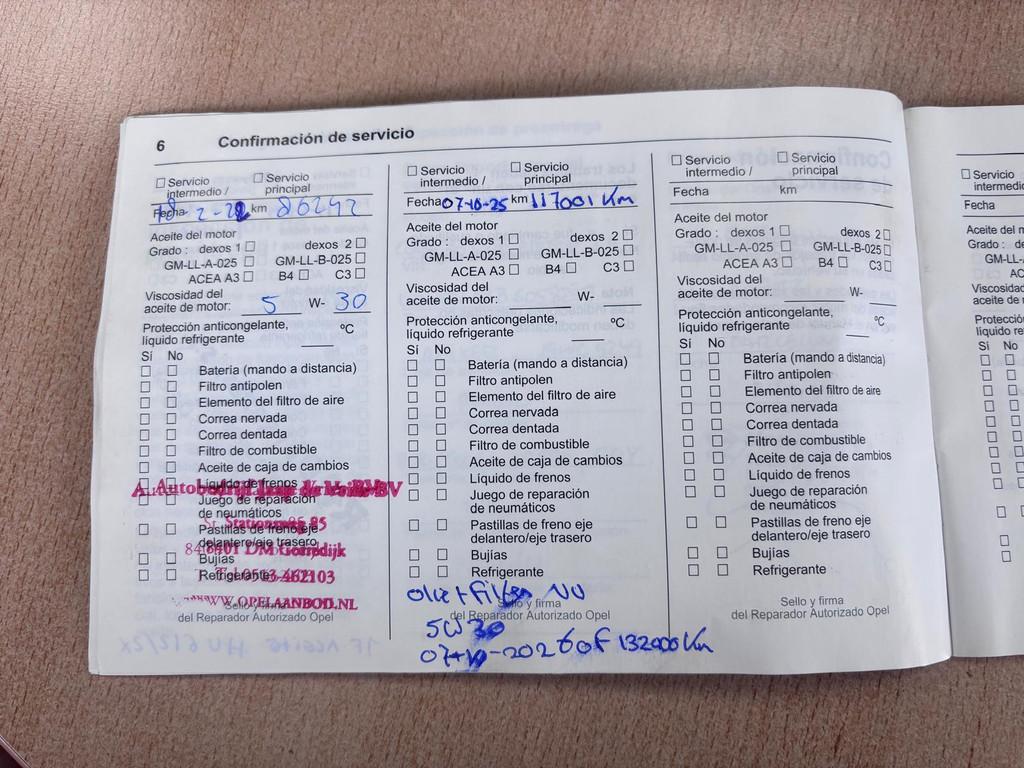 6 Confirmación de servicio
☐ Servicio intermedio / ☐ Servicio principal
Fecha 18-2-22 km 86242
Aceite del motor
Grado : dexos 1 ☐ dexos 2 ☐
GM-LL-A-025 ☐ GM-LL-B-025 ☐
ACEA A3 ☐ B4 ☐ C3 ☐
Viscosidad del
aceite de motor: 5 W- 30
Protección anticongelante, ºC
líquido refrigerante
Sí No
☐ ☐ Batería (mando a distancia)
☐ ☐ Filtro antipolen
☐ ☐ Elemento del filtro de aire
☐ ☐ Correa nervada
☐ ☐ Correa dentada
☐ ☐ Filtro de combustible
☐ ☐ Aceite de caja de cambios
☐ ☐ Líquido de frenos
☐ ☐ Juego de reparación
de neumáticos
☐ ☐ Pastillas de freno eje
delantero/eje trasero
☐ ☐ Bujías
☐ ☐ Refrigerante
Stationsweg 85
8401 DM Gorredijk
462103
WWW.OPELAANBOD.NL
Sello y firma
del Reparador Autorizado Opel
☐ Servicio intermedio / ☐ Servicio principal
Fecha 07-10-25 km 117001 Km
Aceite del motor
Grado : dexos 1 ☐ dexos 2 ☐
GM-LL-A-025 ☐ GM-LL-B-025 ☐
ACEA A3 ☐ B4 ☐ C3 ☐
Viscosidad del
aceite de motor: W-
Protección anticongelante, ºC
líquido refrigerante
Sí No
☐ ☐ Batería (mando a distancia)
☐ ☐ Filtro antipolen
☐ ☐ Elemento del filtro de aire
☐ ☐ Correa nervada
☐ ☐ Correa dentada
☐ ☐ Filtro de combustible
☐ ☐ Aceite de caja de cambios
☐ ☐ Líquido de frenos
☐ ☐ Juego de reparación
de neumáticos
☐ ☐ Pastillas de freno eje
delantero/eje trasero
☐ ☐ Bujías
☐ ☐ Refrigerante
olie + Filter NU
Sello y firma
del Reparador Autorizado Opel
5W30
07-10-2026 of 132000 Km
☐ Servicio intermedio / ☐ Servicio principal
Fecha km
Aceite del motor
Grado : dexos 1 ☐ dexos 2 ☐
GM-LL-A-025 ☐ GM-LL-B-025 ☐
ACEA A3 ☐ B4 ☐ C3 ☐
Viscosidad del
aceite de motor: W-
Protección anticongelante, ºC
líquido refrigerante
Sí No
☐ ☐ Batería (mando a distancia)
☐ ☐ Filtro antipolen
☐ ☐ Elemento del filtro de aire
☐ ☐ Correa nervada
☐ ☐ Correa dentada
☐ ☐ Filtro de combustible
☐ ☐ Aceite de caja de cambios
☐ ☐ Líquido de frenos
☐ ☐ Juego de reparación
de neumáticos
☐ ☐ Pastillas de freno eje
delantero/eje trasero
☐ ☐ Bujías
☐ ☐ Refrigerante
Sello y firma
del Reparador Autorizado Opel
☐ Servicio
Fecha
Grado :
Sí No